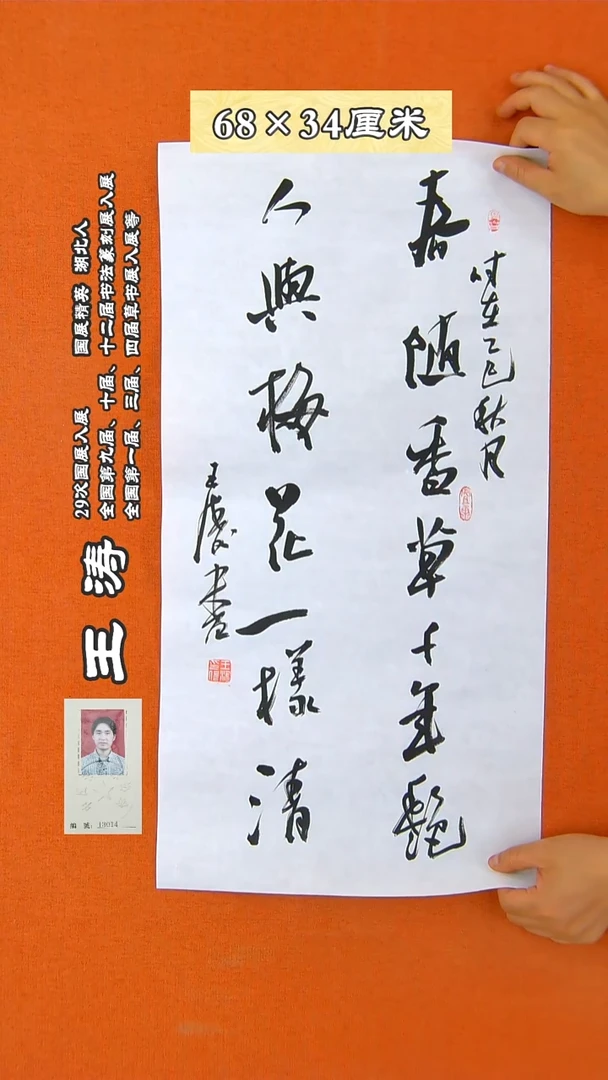 68×34厘米
春随香草千年艷
时在乙巳秋月
人與梅花一樣清
王涛
29次国展入展 国展精英 湖北人
全国第九届、十届、十二届书法篆刻展入展
全国第一届、三届、四届草书展入展等